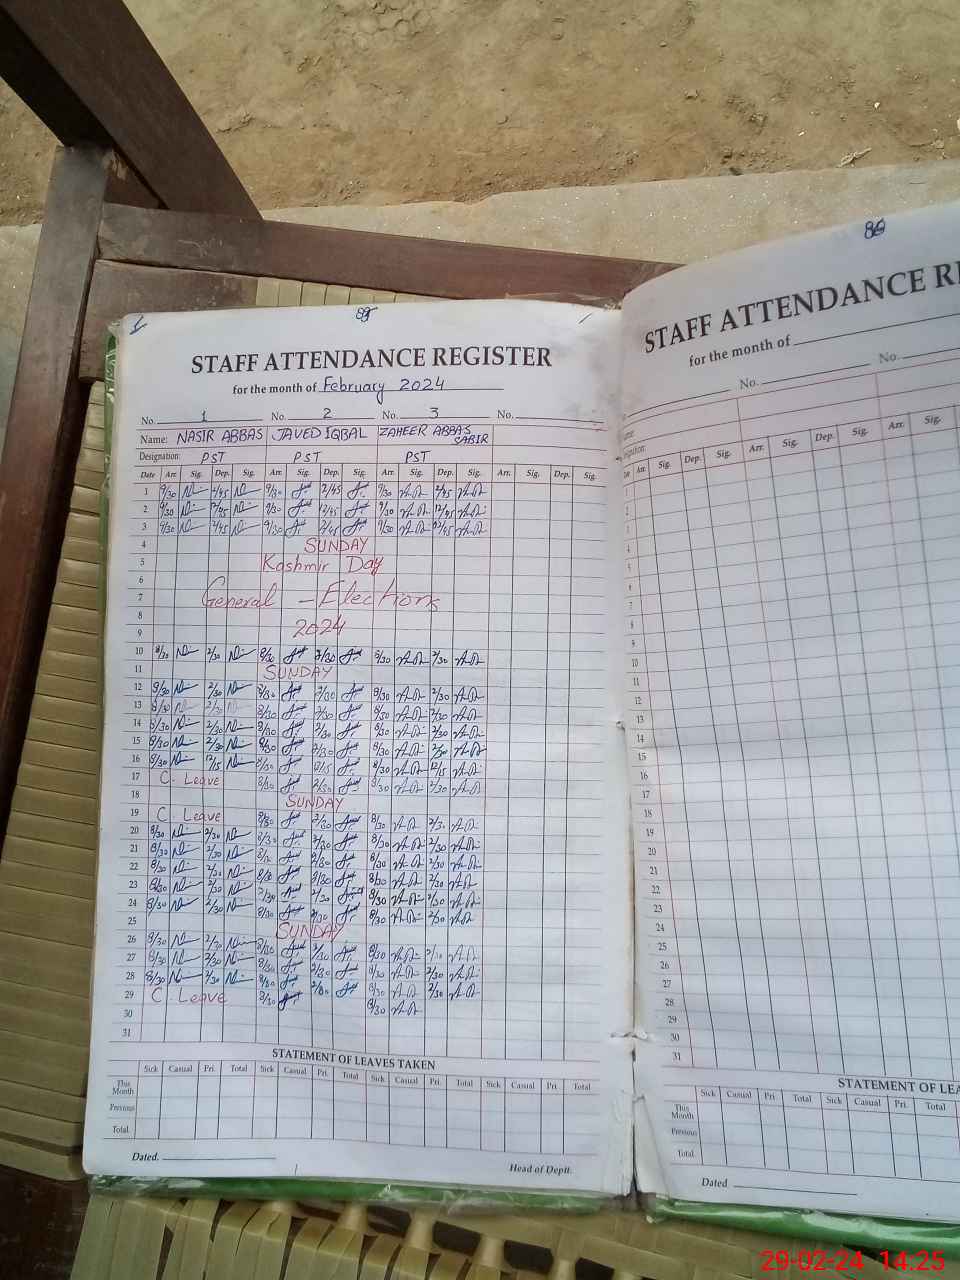 85
STAFF ATTENDANCE REGISTER
for the month of February 2024
No. 1 No. 2 No. 3 No.
Name: NASIR ABBAS JAVED IQBAL ZAHEER ABBAS SABIR
Designation: PST PST PST
Date Arr. Sig. Dep. Sig. Arr. Sig. Dep. Sig. Arr. Sig. Dep. Sig. Arr. Sig. Dep. Sig.
1 9/30 2/45 9/30 2/45 9/30 2/45
2 9/30 12/45 9/30 12/45 9/30 12/45
3 9/30 2/45 9/30 2/45 9/30 12/45
4 SUNDAY
5 Kashmir Day
6
7 General - Elections
8 2024
9
10 8/30 2/30 8/30 2/30 8/30 2/30
11 SUNDAY
12 8/30 2/30 8/30 2/30 8/30 2/30
13 8/30 2/30 8/30 2/30 8/30 2/30
14 8/30 2/30 8/30 2/30 8/30 2/30
15 8/30 2/30 8/30 2/30 8/30 2/30
16 8/30 12/15 8/30 12/15 8/30 12/15
17 C. Leave 8/30 2/30 8/30 2/30
18 SUNDAY
19 C. Leave 8/30 2/30 8/30 2/30
20 8/30 2/30 8/30 2/30 8/30 2/30
21 8/30 2/30 8/30 2/30 8/30 2/30
22 8/30 2/30 8/30 2/30 8/30 2/30
23 8/30 2/30 8/30 2/30 8/30 2/30
24 8/30 2/30 8/30 2/30 8/30 2/30
25 SUNDAY
26 8/30 2/30 8/30 2/30 8/30 2/30
27 8/30 2/30 8/30 2/30 8/30 2/30
28 8/30 2/30 8/30 2/30 8/30 2/30
29 C. Leave 8/30 8/30
30
31
STATEMENT OF LEAVES TAKEN
Sick Casual Pri. Total Sick Casual Pri. Total Sick Casual Pri. Total Sick Casual Pri. Total
This Month
Previous
Total
Dated.
Head of Deptt.
86
STAFF ATTENDANCE
for the month of
No. No.
Arr. Sig. Dep. Sig. Arr. Sig. Dep. Sig. Arr. Sig.
1
2
3
4
5
6
7
8
9
10
11
12
13
14
15
16
17
18
19
20
21
22
23
24
25
26
27
28
29
30
31
STATEMENT OF
Sick Casual Pri. Total Sick Casual Pri. Total
This Month
Previous
Total
Dated
29-02-24 14:25